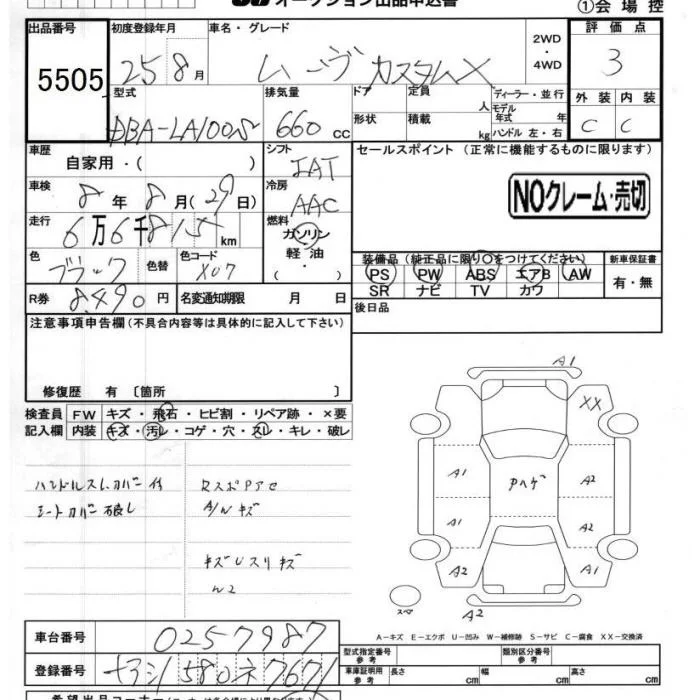 オークション出品申込書
①会場控
出品番号 初度登録年月 車名・グレード 2WD・4WD 評価点
5505 25 8月 ムーヴ カスタムX 3
型式 排気量 ドア 定員 人 ディーラー・並行 外装 内装
DBA-LA100S 660 cc 形状 積載 kg モデル年式 年 ハンドル 左・右 C C
車歴 自家用・( ) シフト IAT セールスポイント (正常に機能するものに限ります)
車検 8年 8月(29日) 冷房 AAC NOクレーム・売切
走行 6万6千815km 燃料 ガソリン 軽油 ・( )
色 ブラック 色替 色コード X07
装備品(純正品に限り○をつけてください) 新車保証書
PS PW ABS エアB AW 有・無
SR ナビ TV カワ
R券 8,490円 名変通知期限 月 日 後日品
注意事項申告欄(不具合内容等は具体的に記入して下さい)
修復歴 有 〔箇所 〕
検査員 FW キズ・飛石・ヒビ割・リペア跡・×要
記入欄 内装 キズ・汚レ・コゲ・穴・スレ・キレ・破レ
ハンドルスレ カバー付
シートカバー 破レ
A/Wキズ
A1
XX
A1 Pハゲ A2
A1 A2
A2 A1
スマ A2
A-キズ E-エクボ U-凹み W-補修跡 S-サビ C-腐食 XX-交換済
車台番号 0257987
型式指定番号 参考 類別区分番号 参考
登録番号 580 7671
車庫証明用 参考 長さ cm 幅 cm 高さ cm